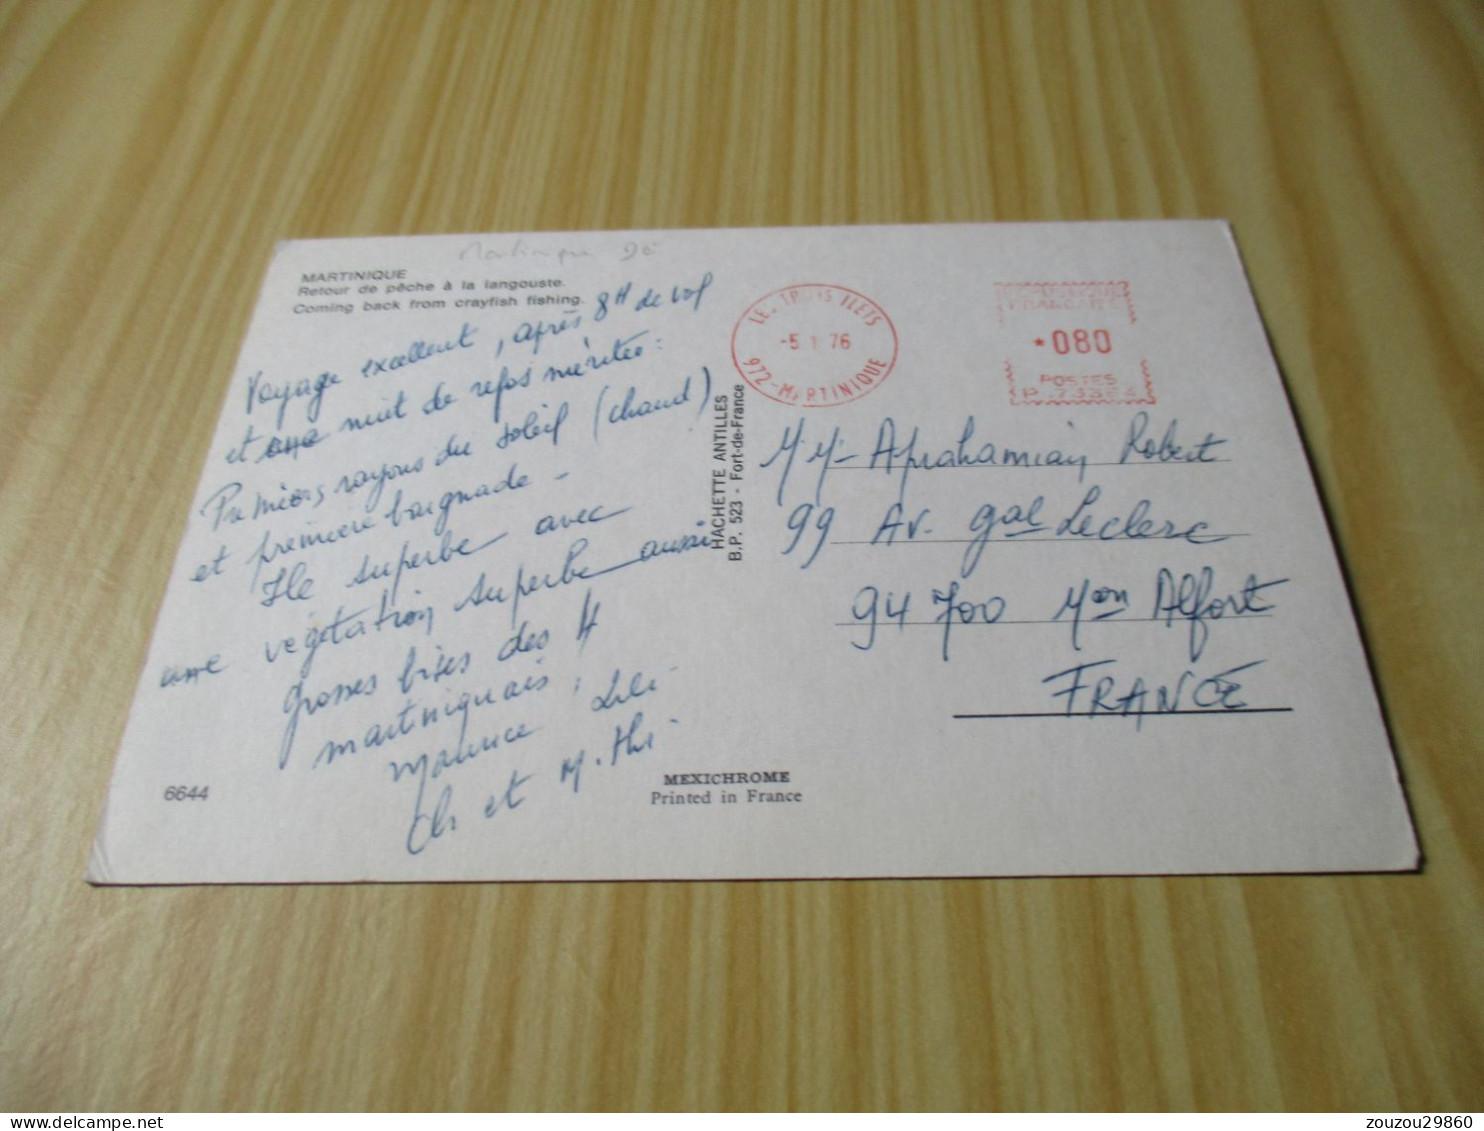 Martinique
MARTINIQUE
Retour de pêche à la langouste.
Coming back from crayfish fishing.
Voyage excellent, après 8H de vol
et une nuit de repos méritée :
Premiers rayons du soleil (chaud)
et première baignade -
Ile superbe avec
une végétation superbe aussi
Grosses bises des 4
martiniquais,
Maurice Lili
Ch et M. Thi
6644
HACHETTE ANTILLES
B.P. 523 - Fort-de-France
MEXICHROME
Printed in France
LES TROIS ILETS
-5. 1 76
972 - MARTINIQUE
FRANCAISE
* 080
POSTES
M. M. Aprahamian Robert
99 Av. Gal Leclerc
94 700 Mon Alfort
FRANCE
zouzou29860